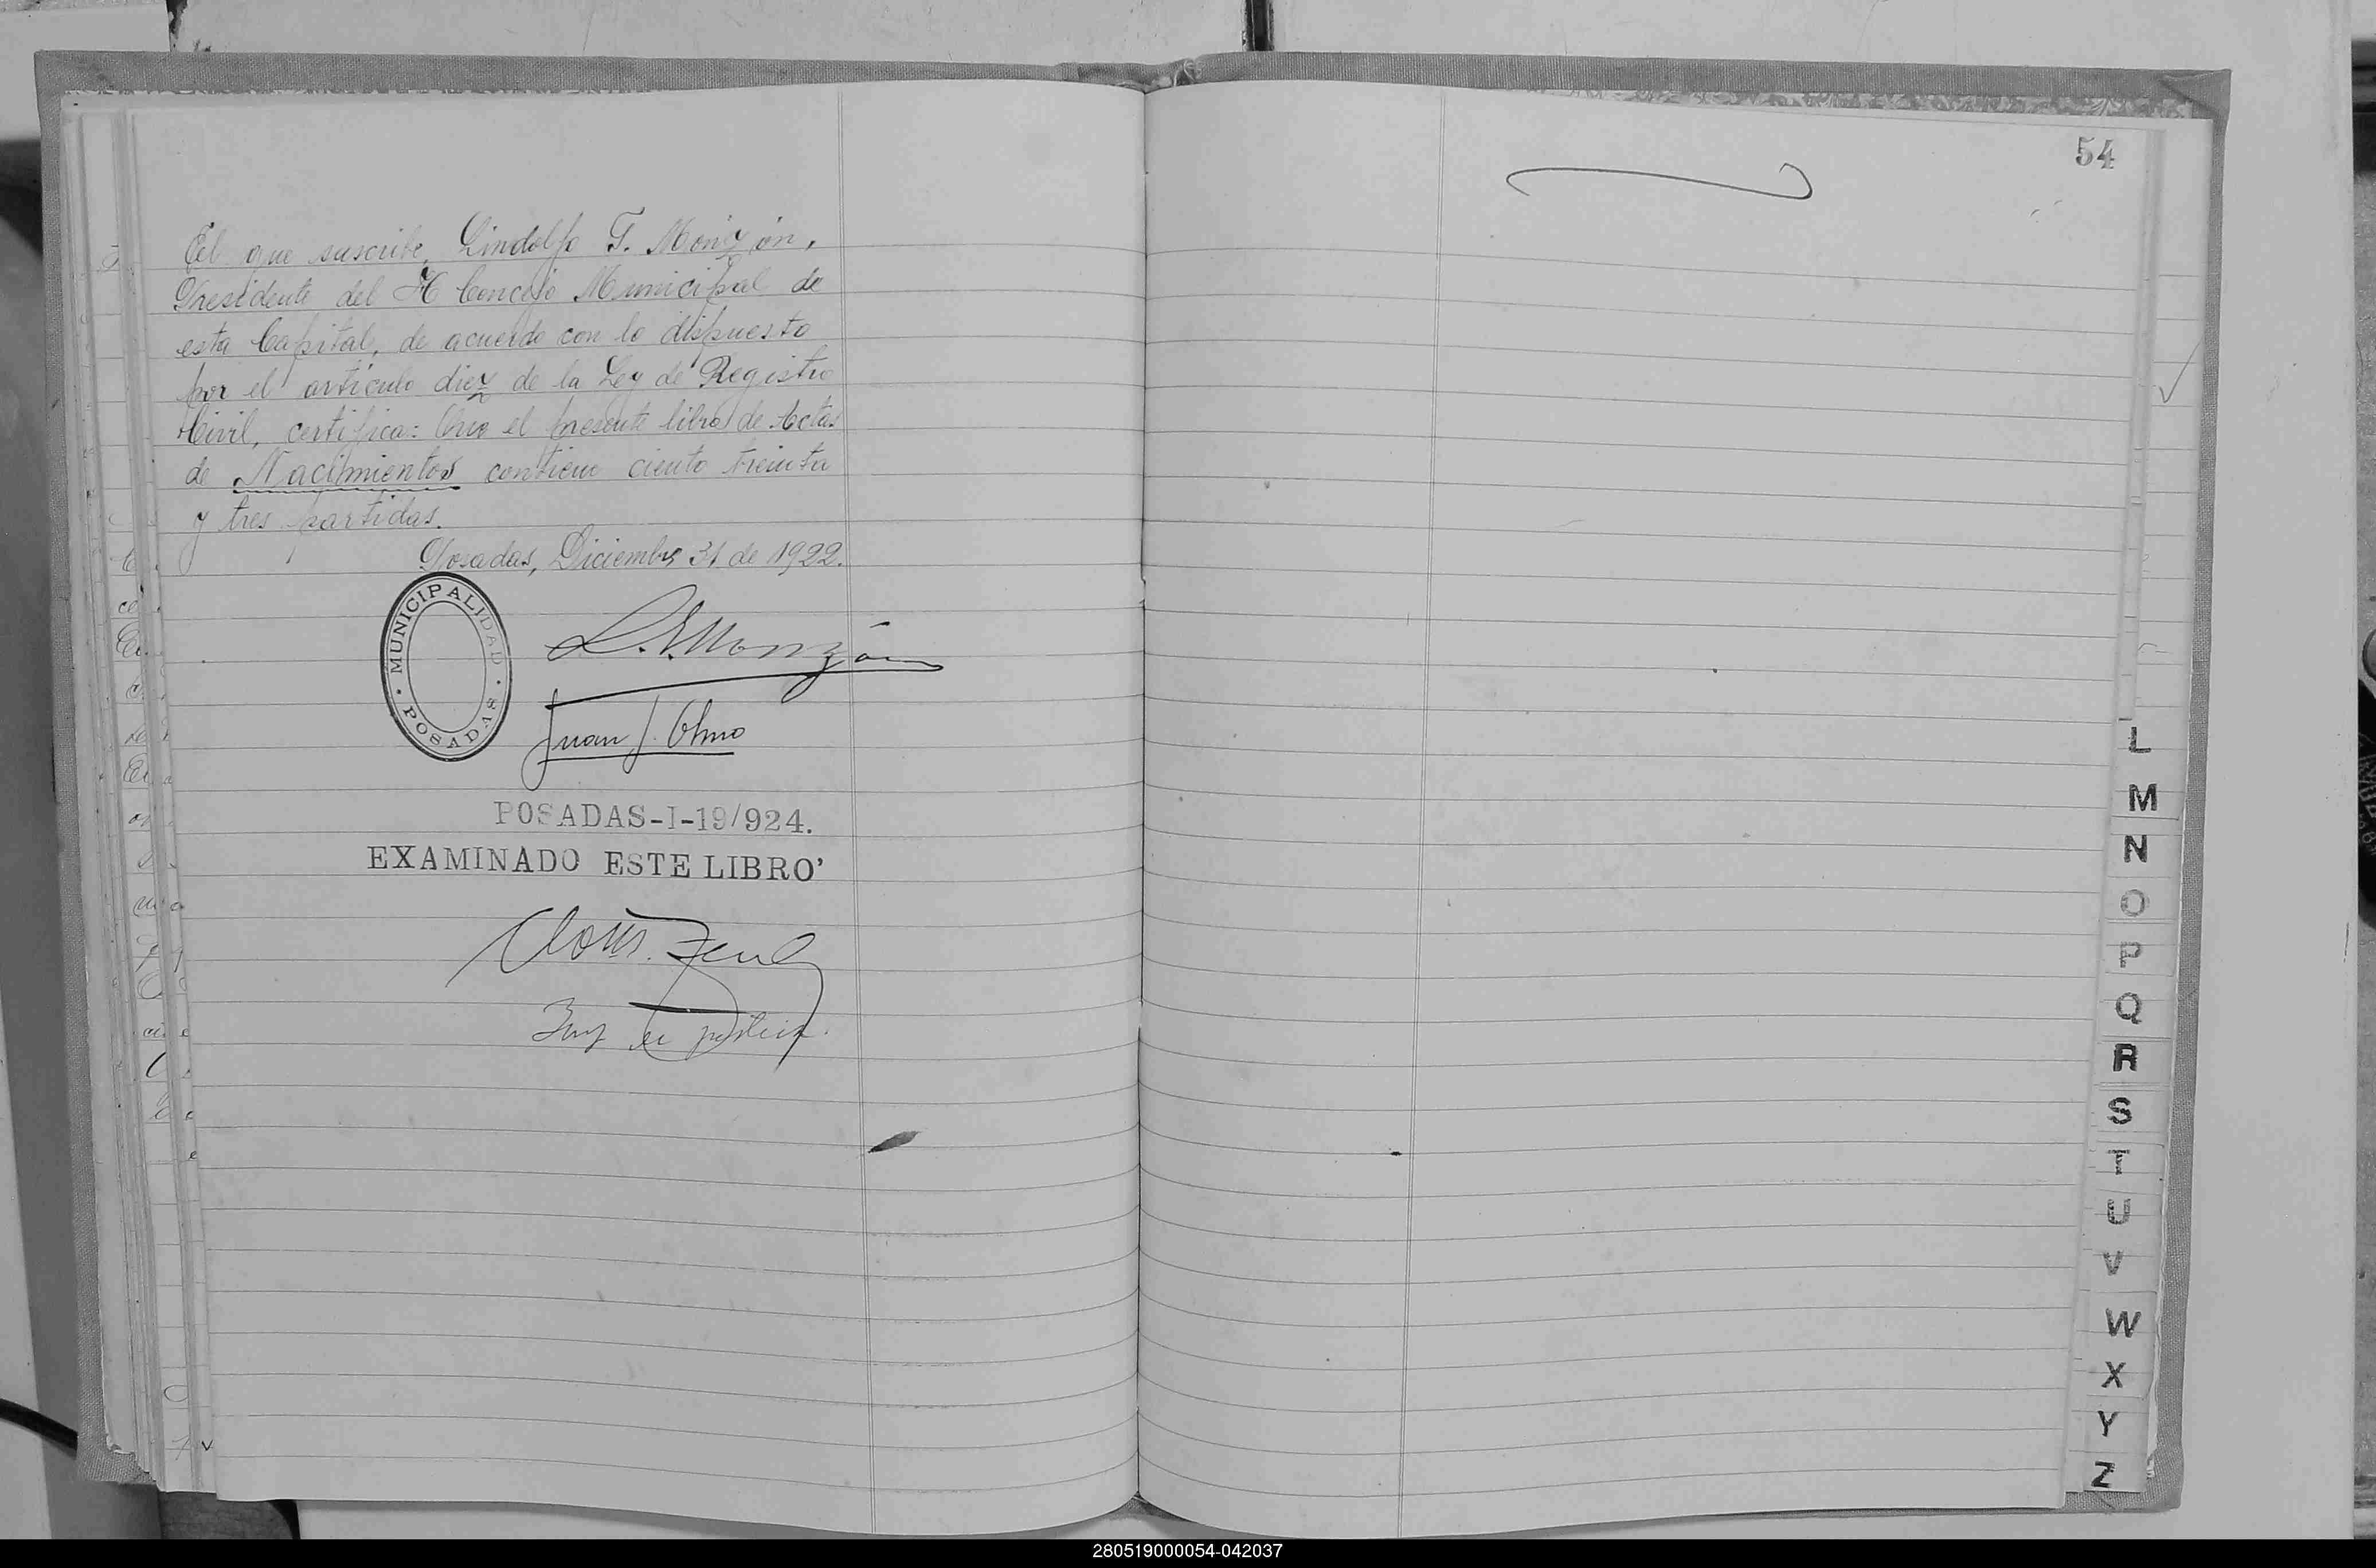 El que suscribe, Lindolfo T. Monzón,
Presidente del H Concejo Municipal de
esta Capital, de acuerdo con lo dispuesto
por el articulo diez de la Ley de Registro
Civil, certifica: Que el presente libro de Actas
de Nacimientos contiene ciento treinta
y tres partidas.
Posadas, Diciembre 31 de 1922.
MUNICIPALIDAD
POSADAS
Monzón
Juan J. Olmo
POSADAS-I-19/924.
EXAMINADO ESTE LIBRO
54
L
M
N
O
P
Q
R
S
T
U
V
W
X
Y
Z
280519000054-042037